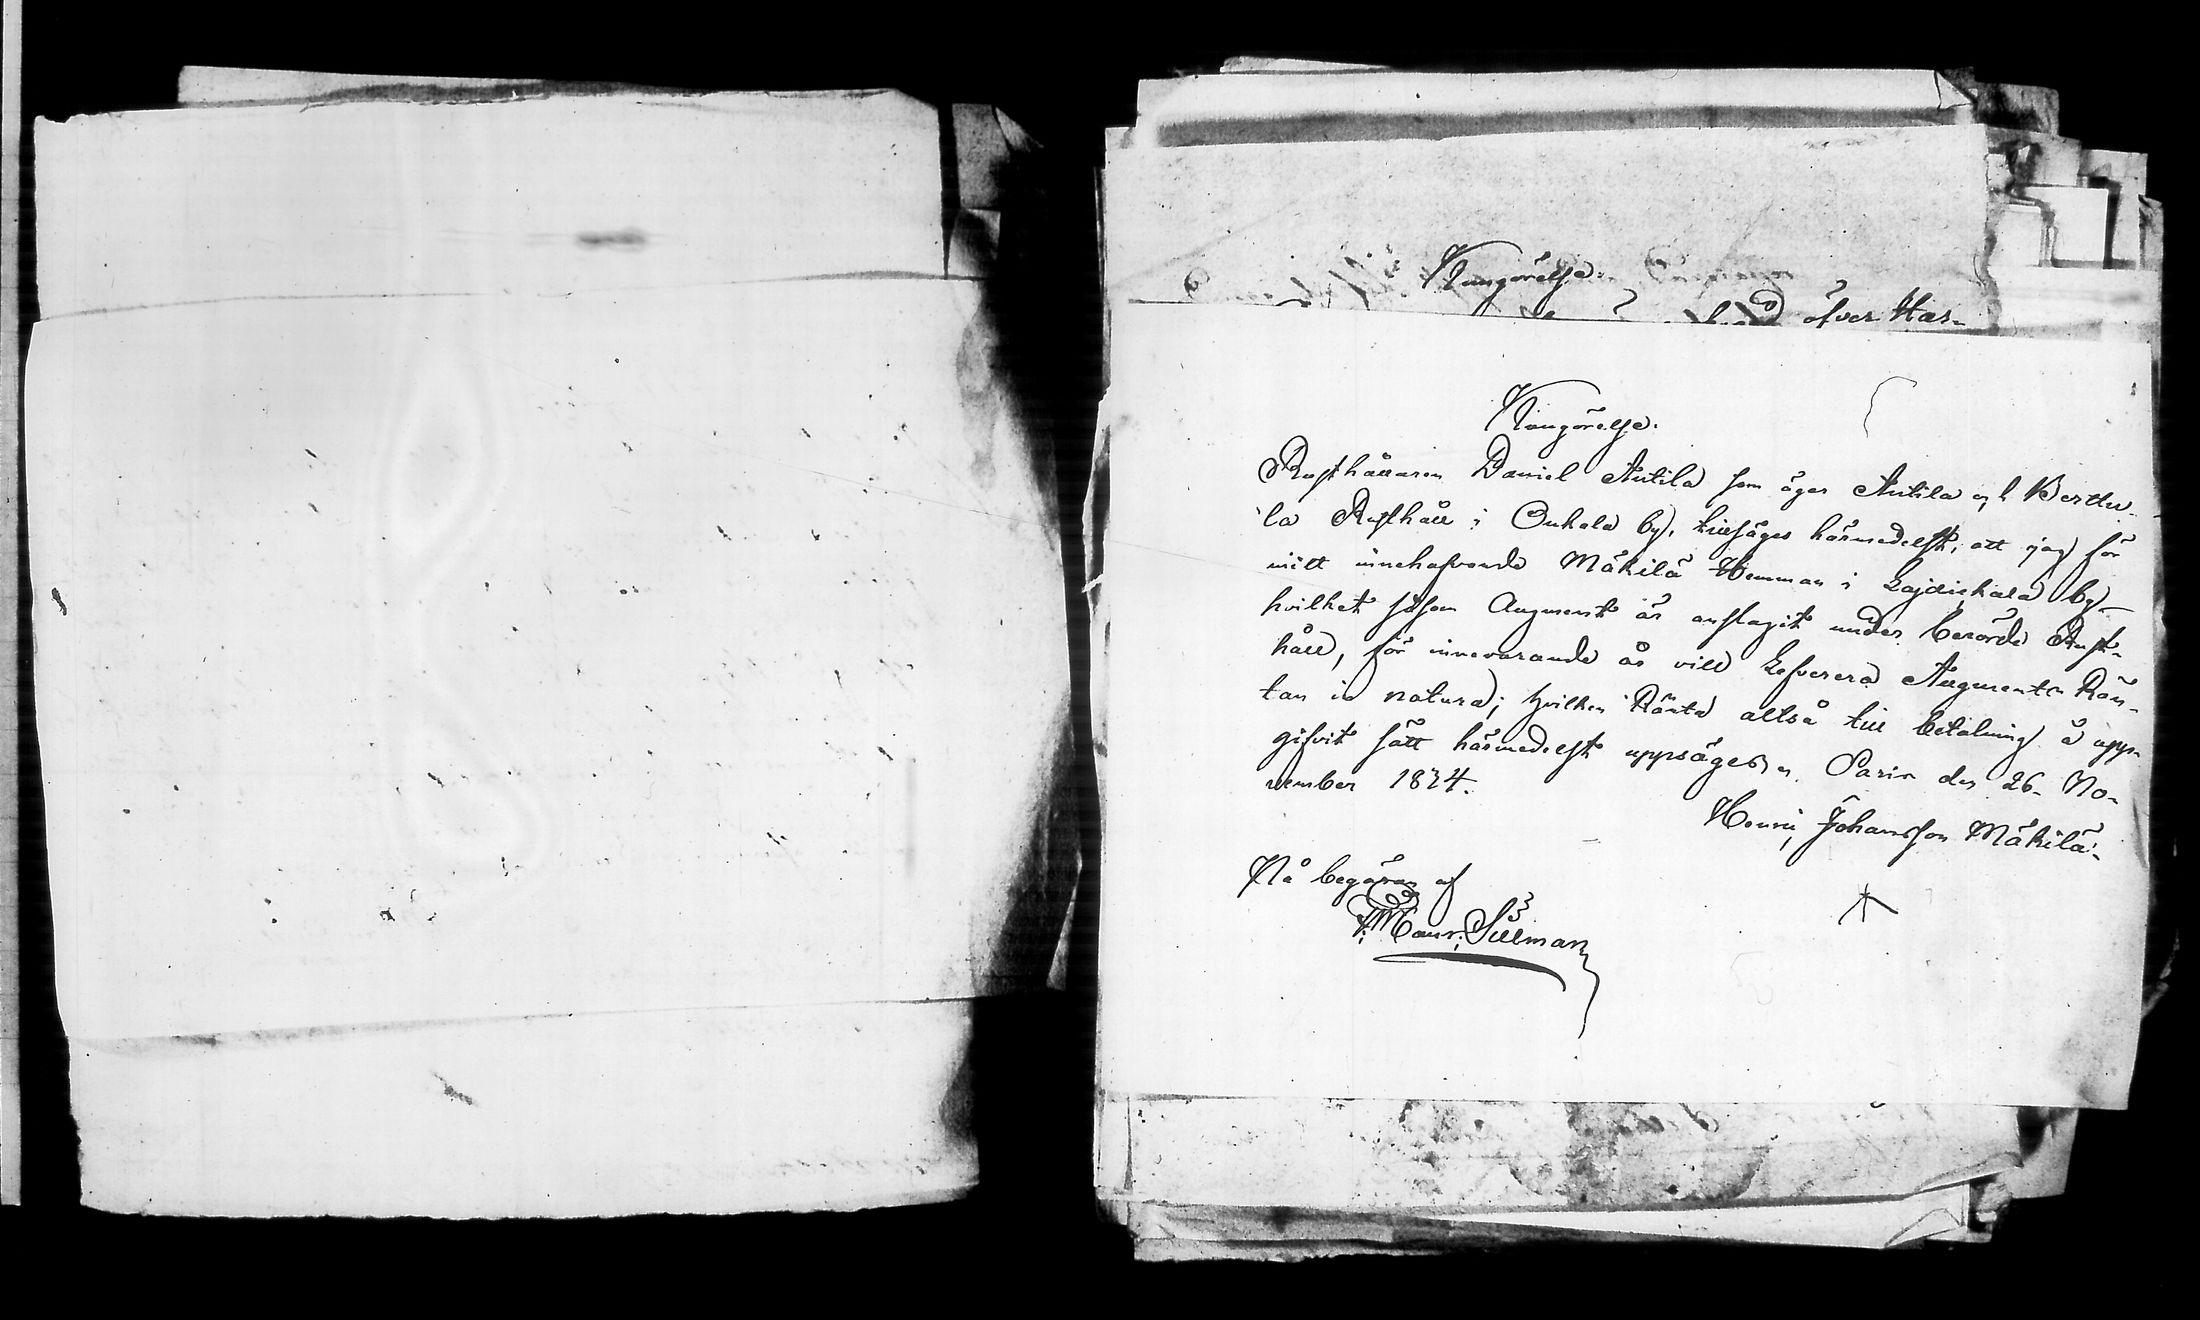 Kungörelse.
öfver Har-
Kungörelse.
Rusthållaren Daniel Antila som äger Antila och Berttu-
la Rusthåll i Onkala by, tillsäges härmedelst, att jag för
mitt innehafvande Mäkilä Hemman i Lajdickala by
hvilket såsom Augment är anslagit under berörde Rust-
håll, för innevarande år vill Lefverera Augments Rän-
tan in natura; hvilken Ränta altså till betalning å upp-
gifvit sätt härmedelst uppsäges. Parin den 26. No-
vember 1874.
Henric Johansson Mäkilä.
På begäran af
Maur. Sillman